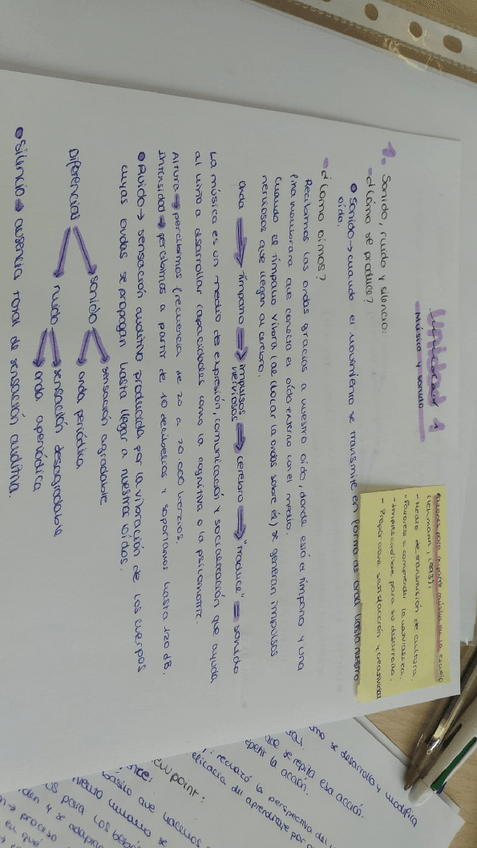 Unidad 1
Música y sonido
Razones para impartir música en la escuela
(Lehmann, 1993):
- Medio de transmisión de cultura.
- Favorece a comprender la naturaleza.
- Imprescindible para su desarrollo.
- Proporciona satisfacción y creatividad
1. Sonido, ruido y silencio:
- ¿Cómo se produce?
Sonido → cuando el movimiento se transmite en forma de onda hasta nuestro
oído.
- ¿Cómo oímos?
Recibimos las ondas gracias a nuestro oído, donde está el tímpano y una
fina membrana que conecta el oído externo con el medio.
Cuando el tímpano vibra (al chocar la ondas sobre él) se generan impulsos
nerviosos que llegan al cerebro.
Onda → tímpano → impulsos nerviosos → cerebro → "traduce" = sonido
La música es un medio de expresión, comunicación y socialización que ayuda
al niño a desarrollar capacidades como la cognitiva o la psicomotriz.
Altura → percibimos frecuencia de 20 a 20 000 hercios.
Intensidad → percibimos a partir de 10 decibelios y soportamos hasta 120 dB.
Ruido → sensación auditiva producida por la vibración de los cuerpos
cuyas ondas se propagan hasta llegar a nuestros oídos.
Diferencias
sonido
sensación agradable
onda periódica
ruido
sensación desagradable
onda aperiódica
Silencio → ausencia total de sensación auditiva.
se desarrolla y modifica
que se repita esa acción.
repetir la acción.
: rechazó la perspectiva del
eficacia del aprendizaje por
viewpoint:
básico que hacemos